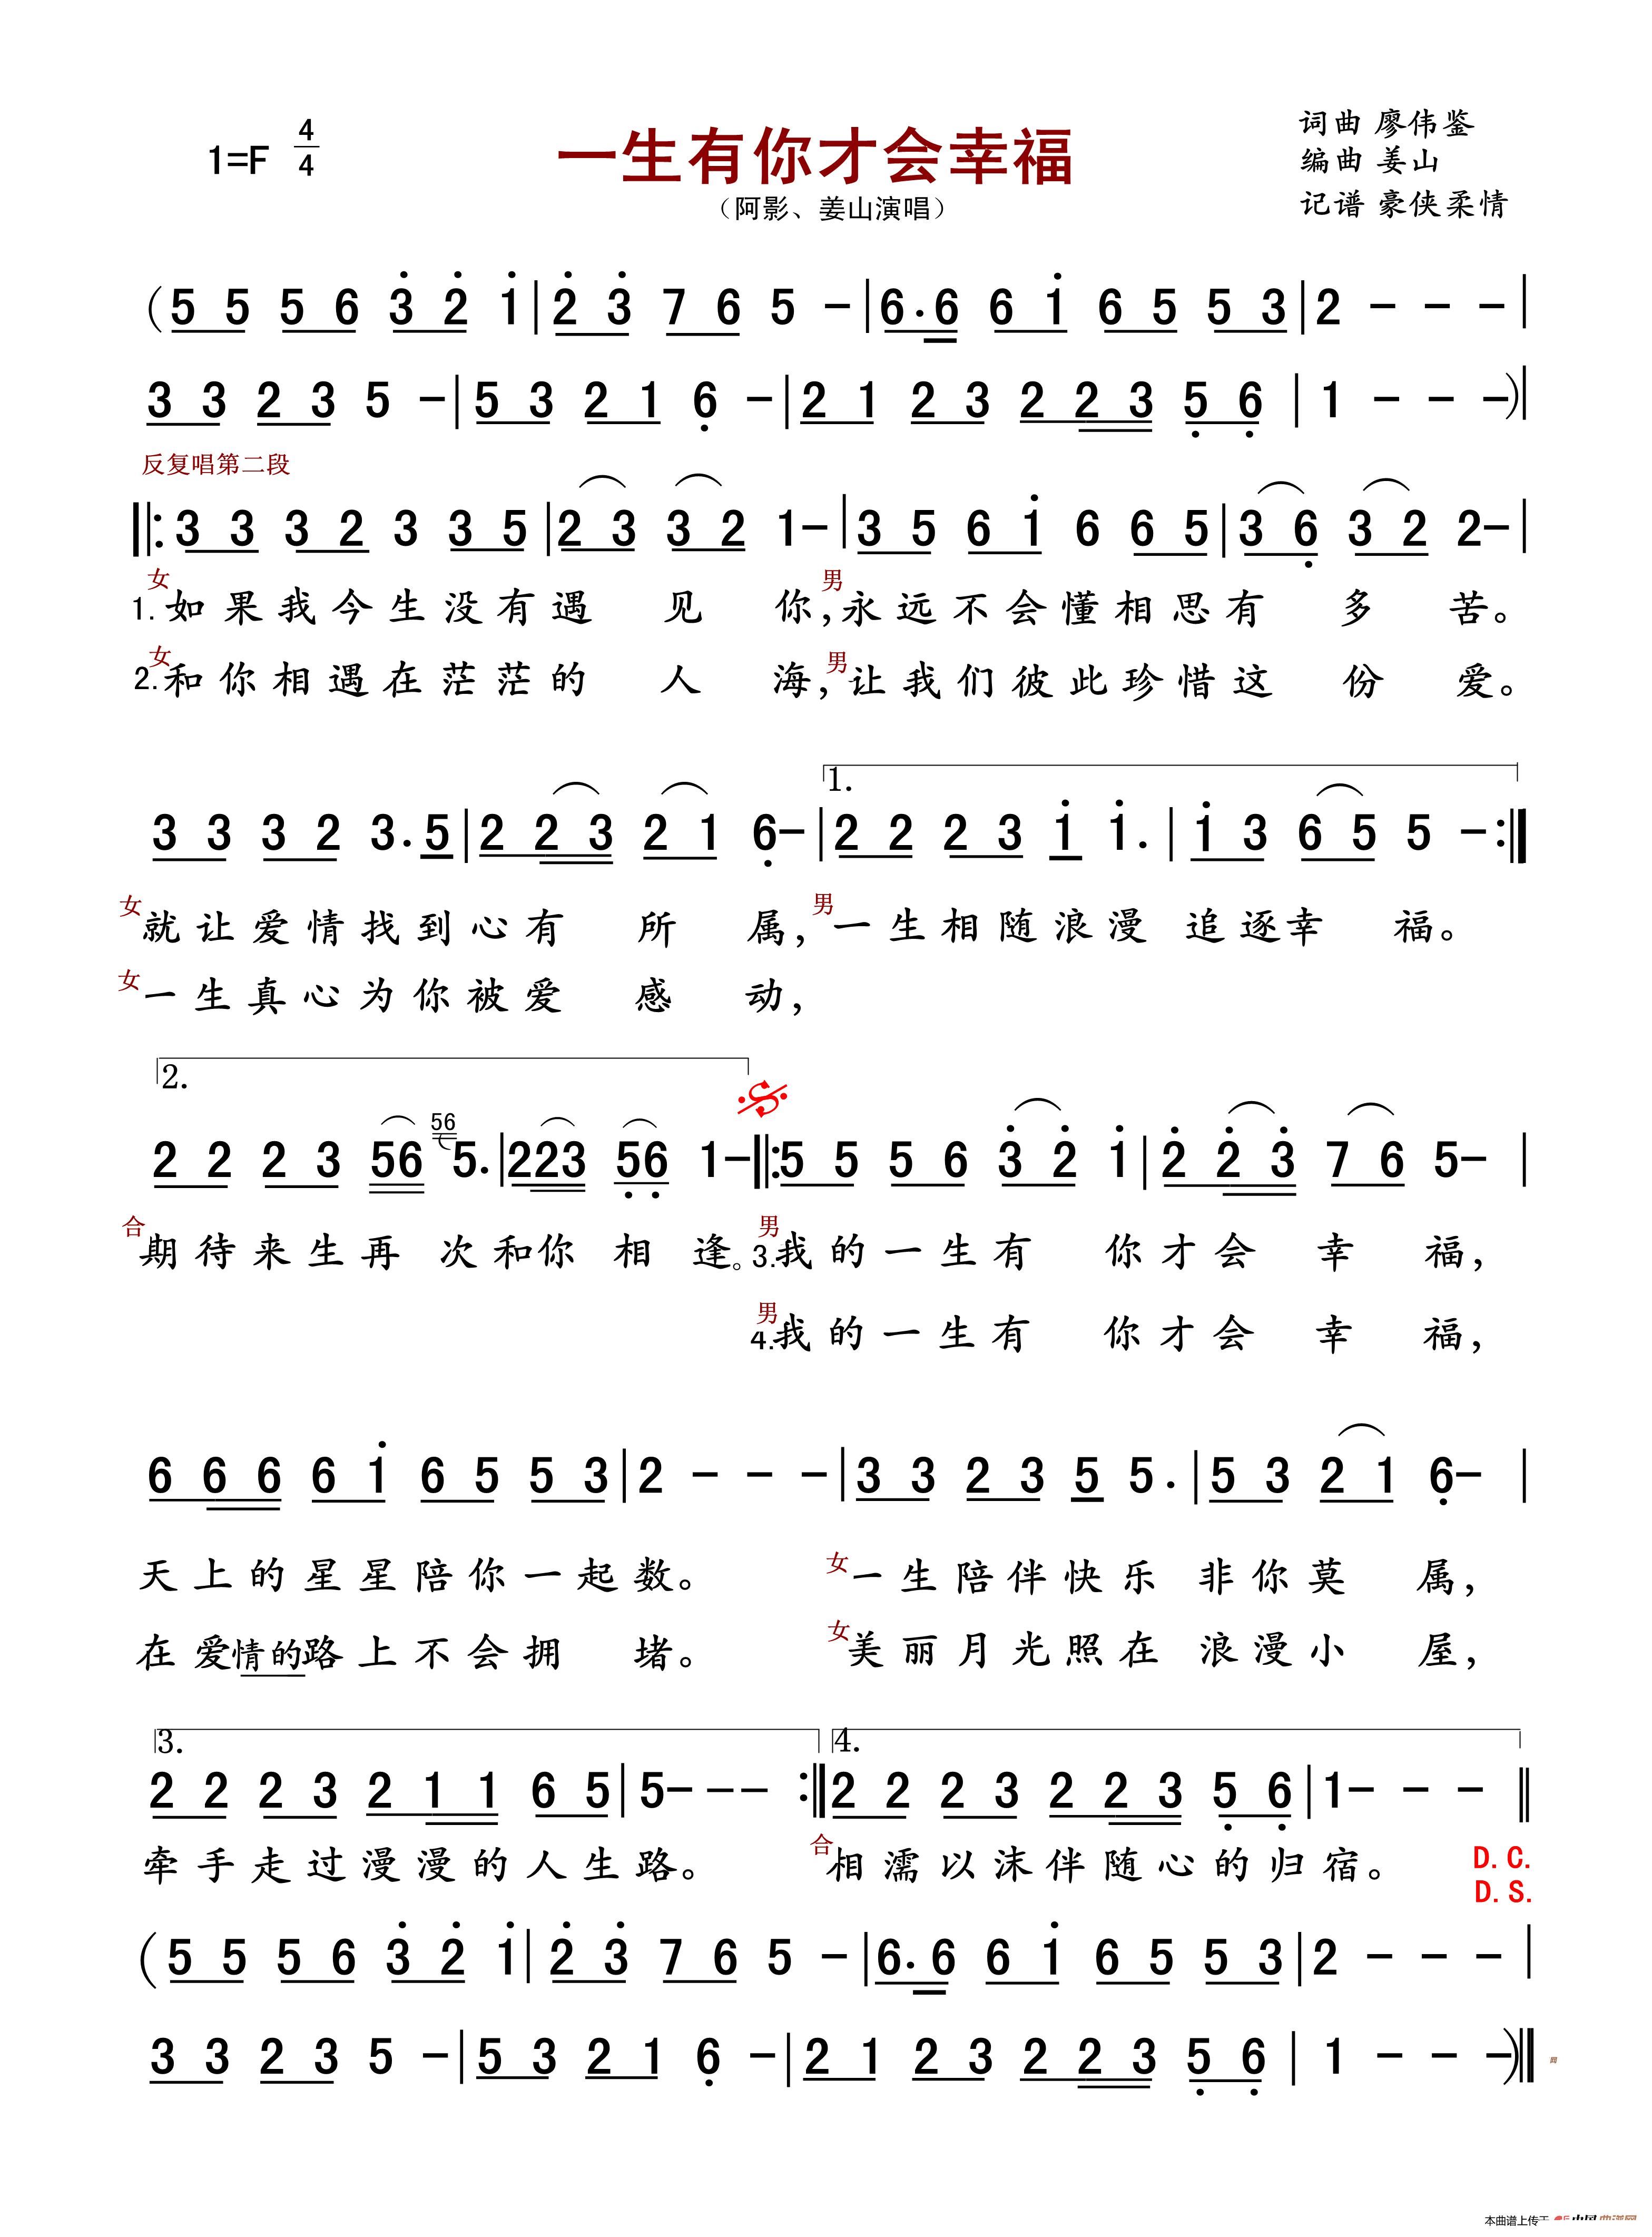 1=F 4/4
一生有你才会幸福
(阿影、姜山演唱)
词曲 廖伟鉴
编曲 姜山
记谱 豪侠柔情
(5 5 5 6 3̇ 2̇ 1̇ | 2̇ 3̇ 7 6 5 - | 6. 6 6 1̇ 6 5 5 3 | 2 - - - |
3 3 2 3 5 - | 5 3 2 1 6̣ - | 2 1 2 3 2 2 3 5̣ 6̣ | 1 - - -) |
反复唱第二段
‖: 3 3 3 2 3 3 5 | 2 3 3 2 1 - | 3 5 6 1̇ 6 6 5 | 3 6̣ 3 2 2 - |
女 男
1. 如果我今生没有遇见你,永远不会懂相思有多苦。
女 男
2. 和你相遇在茫茫的人海,让我们彼此珍惜这份爱。
1.
3 3 3 2 3. 5 | 2 2 3 2 1 6̣ - | 2 2 2 3 1̇ 1̇. | 1̇ 3 6 5 5 - :‖
女 就让爱情找到心有所属, 男 一生相随浪漫追逐幸福。
女 一生真心为你被爱感动,
2.
2 2 2 3 56 56 5. | 223 5̣6̣ 1 - ‖: 5 5 5 6 3̇ 2̇ 1̇ | 2̇ 2̇ 3̇ 7 6 5 - |
合 期待来生再次和你相逢。 男 3.我的一生有你才会幸福,
男 4.我的一生有你才会幸福,
6 6 6 6 1̇ 6 5 5 3 | 2 - - - | 3 3 2 3 5 5. | 5 3 2 1 6̣ - |
天上的星星陪你一起数。 女 一生陪伴快乐非你莫属,
在爱情的路上不会拥堵。 女 美丽月光照在浪漫小屋,
3. 4.
2 2 2 3 2 1 1 6 5 | 5 - - - :‖ 2 2 2 3 2 2 3 5̣ 6̣ | 1 - - - ‖
牵手走过漫漫的人生路。 合 相濡以沫伴随心的归宿。
D.C.
D.S.
(5 5 5 6 3̇ 2̇ 1̇ | 2̇ 3̇ 7 6 5 - | 6. 6 6 1̇ 6 5 5 3 | 2 - - - |
3 3 2 3 5 - | 5 3 2 1 6̣ - | 2 1 2 3 2 2 3 5̣ 6̣ | 1 - - -) ‖
本曲谱上传于